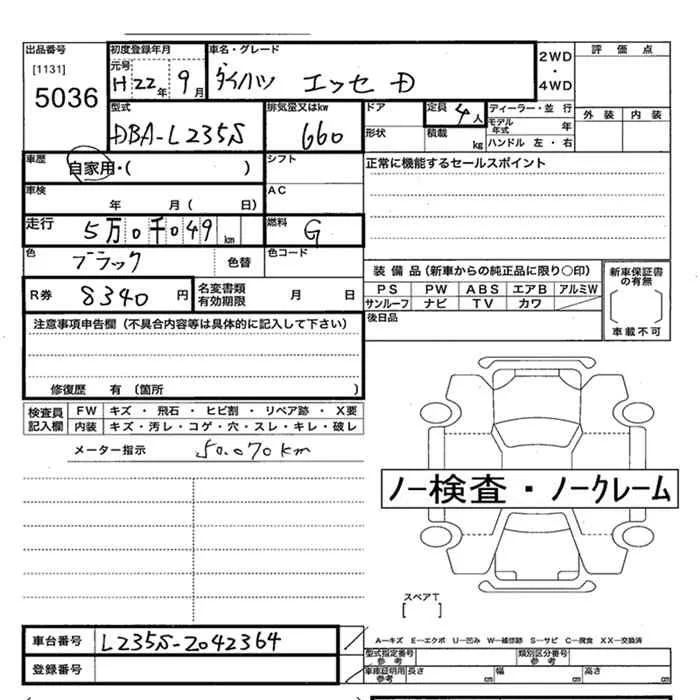 出品番号
[1131]
5036
初度登録年月
元号
H 22年 9月
車名・グレード
ダイハツ エッセ D
2WD
・
4WD
評価点
外装 内装
型式
DBA-L235S
排気量又はkw
660
ドア
形状
定員
4人
積載
kg
ディーラー・並行
モデル年式 年
ハンドル 左・右
車歴
自家用・( )
シフト
正常に機能するセールスポイント
車検
年 月( 日)
AC
走行
5万0千049km
燃料
G
色
ブラック
色替
色コード
R券
8340円
名変書類
有効期限
月 日
装備品(新車からの純正品に限り○印)
PS PW ABS エアB アルミW
サンルーフ ナビ TV カワ
新車保証書
の有無
車載不可
後日品
注意事項申告欄(不具合内容等は具体的に記入して下さい)
修復歴 有〔箇所 〕
検査員
記入欄
FW キズ・飛石・ヒビ割・リペア跡・X要
内装 キズ・汚レ・コゲ・穴・スレ・キレ・破レ
メーター指示
50.070km
ノー検査・ノークレーム
スペアT
[ ]
A―キズ E―エクボ U―凹み W―補修跡 S―サビ C―腐食 XX―交換済
車台番号
L235S-2042364
登録番号
型式指定番号
参考
類別区分番号
参考
車庫証明用
参考
長さ cm 幅 cm 高さ cm